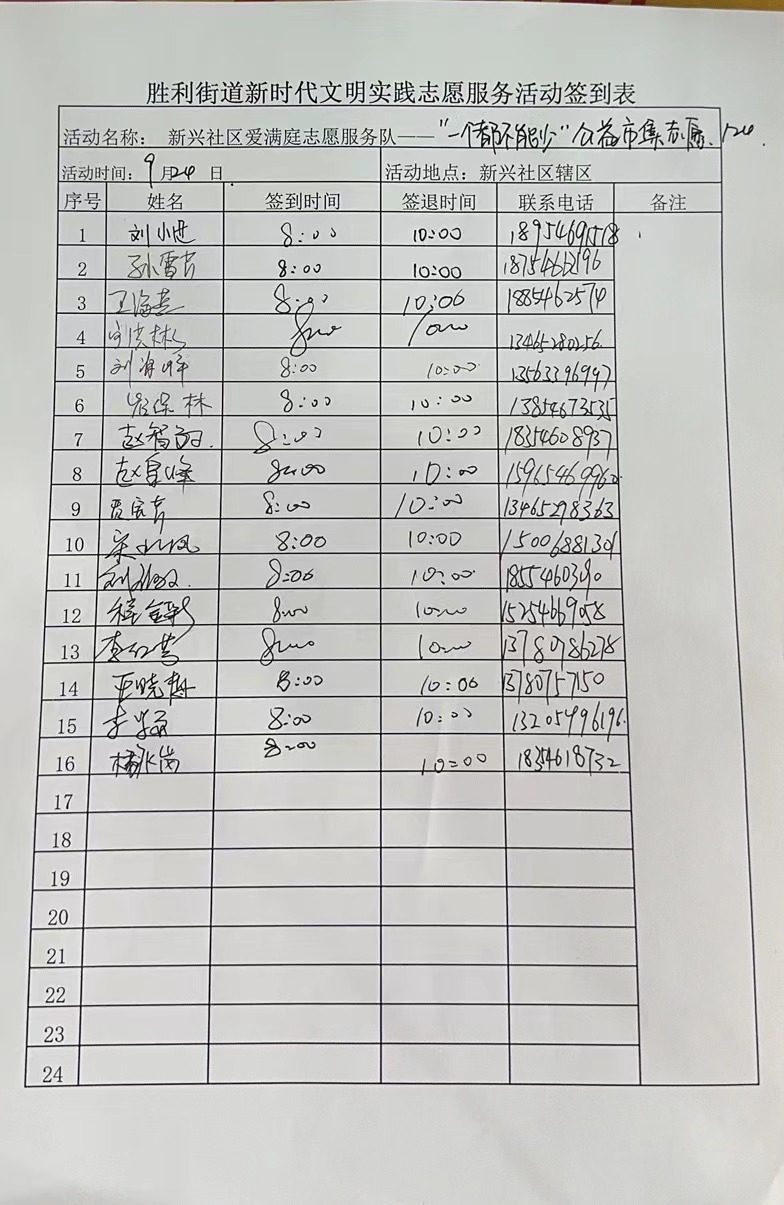 胜利街道新时代文明实践志愿服务活动签到表
活动名称： 新兴社区爱满庭志愿服务队——“一个都不能少”公益市集志愿
活动时间：9月24日 活动地点：新兴社区辖区
序号 姓名 签到时间 签退时间 联系电话 备注
1 刘小进 8:00 10:00 18954691518
2 孙雪芹 8:00 10:00 18754662196
3 王海燕 8:00 10:00 1885462574
4 8:00 10:00 13465280256
5 刘海峰 8:00 10:00 13563396997
6 保林 8:00 10:00 13854673535
7 赵智 8:00 10:00 18354608937
8 赵 峰 8:00 10:00 1596546996
9 贾 芳 8:00 10:00 13465298363
10 宋 8:00 10:00 15006881301
11 刘 8:00 10:00
12 程 8:00 10:00 15254669058
13 李红 8:00 10:00 13780786278
14 王晓梅 8:00 10:00 13780757150
15 李 8:00 10:00 13205496196
16 杨 8:00 10:00 1834618732
17
18
19
20
21
22
23
24